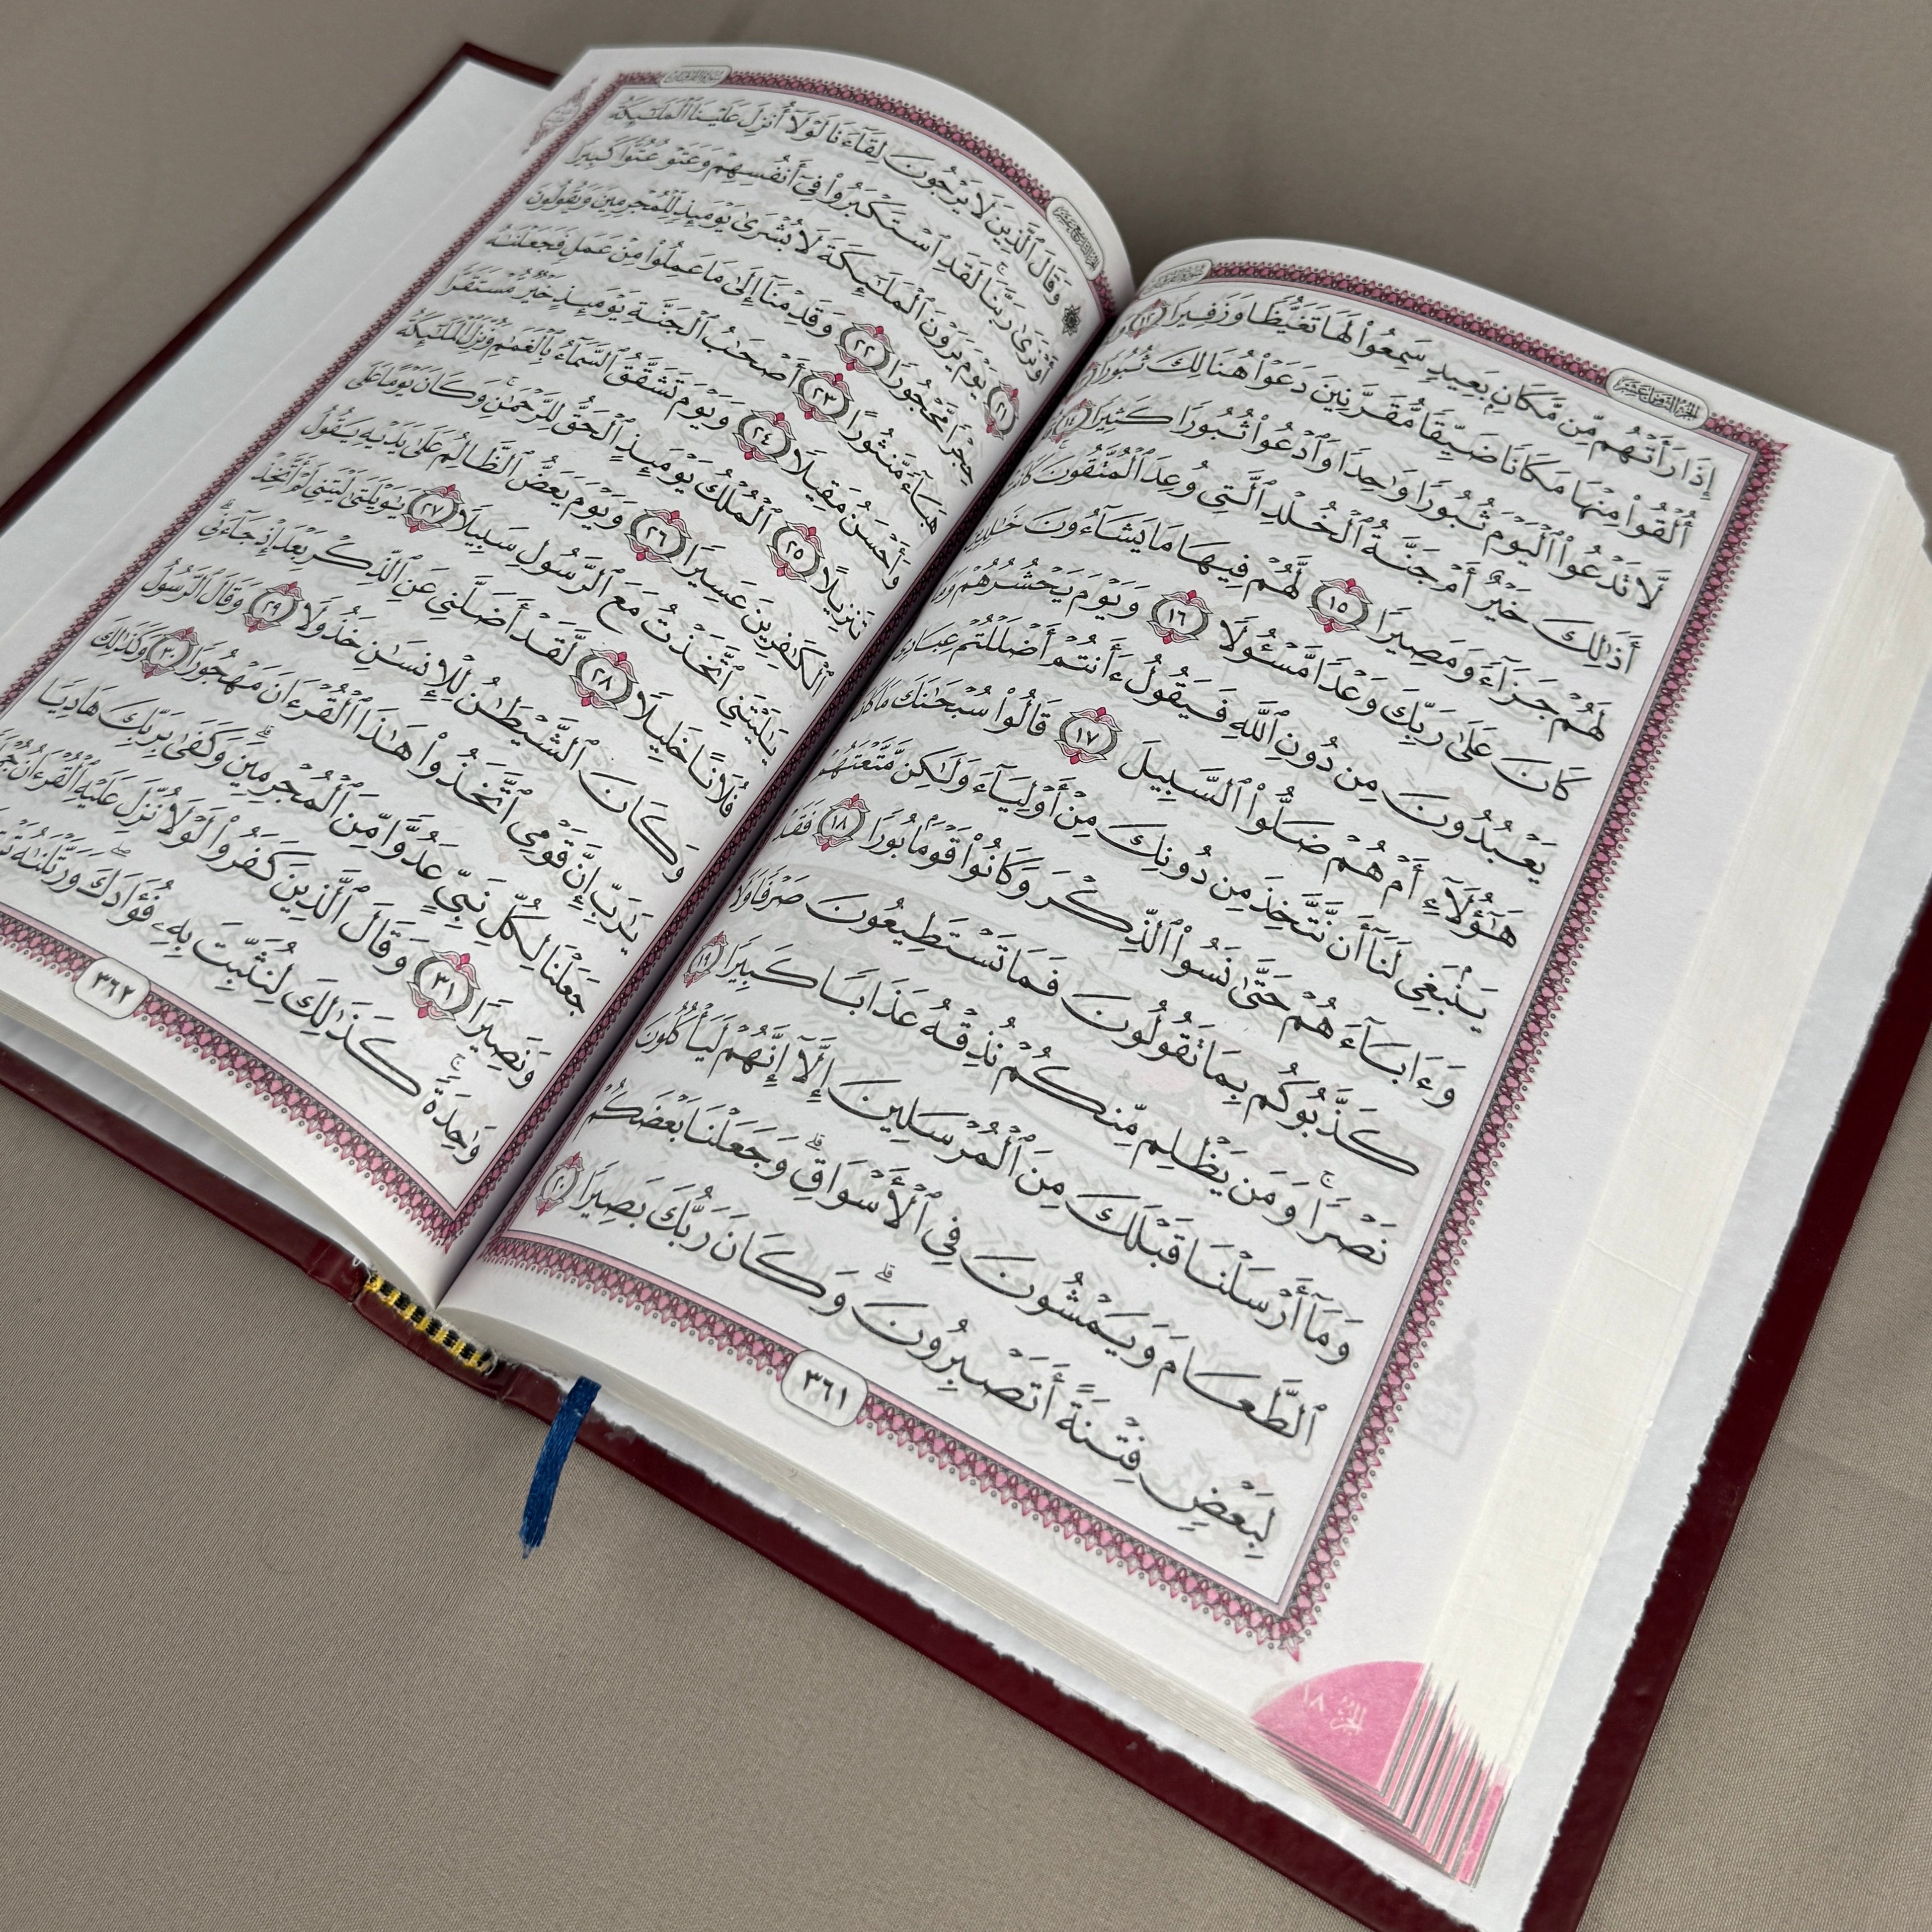 إِذَا رَأَتْهُم مِّن مَّكَانٍ بَعِيدٍ سَمِعُوا۟ لَهَا تَغَيُّظًا وَزَفِيرًا ١٢
أُلْقُوا۟ مِنْهَا مَكَانًا ضَيِّقًا مُّقَرَّنِينَ دَعَوْا۟ هُنَالِكَ ثُبُورًا
لَّا تَدْعُوا۟ ٱلْيَوْمَ ثُبُورًا وَٰحِدًا وَٱدْعُوا۟ ثُبُورًا كَثِيرًا ١٤
أَذَٰلِكَ خَيْرٌ أَمْ جَنَّةُ ٱلْخُلْدِ ٱلَّتِى وُعِدَ ٱلْمُتَّقُونَ
لَهُمْ جَزَآءً وَمَصِيرًا ١٥ لَّهُمْ فِيهَا مَا يَشَآءُونَ
كَانَ عَلَىٰ رَبِّكَ وَعْدًا مَّسْـُٔولًا ١٦ وَيَوْمَ يَحْشُرُهُمْ
يَعْبُدُونَ مِن دُونِ ٱللَّهِ فَيَقُولُ ءَأَنتُمْ أَضْلَلْتُمْ عِبَادِى
هَـٰٓؤُلَآءِ أَمْ هُمْ ضَلُّوا۟ ٱلسَّبِيلَ ١٧ قَالُوا۟ سُبْحَـٰنَكَ مَا كَانَ
يَنۢبَغِى لَنَآ أَن نَّتَّخِذَ مِن دُونِكَ مِنْ أَوْلِيَآءَ وَلَـٰكِن مَّتَّعْتَهُمْ
وَءَابَآءَهُمْ حَتَّىٰ نَسُوا۟ ٱلذِّكْرَ وَكَانُوا۟ قَوْمًۢا بُورًا ١٨ فَقَدْ
كَذَّبُوكُم بِمَا تَقُولُونَ فَمَا تَسْتَطِيعُونَ صَرْفًا وَلَا
نَصْرًا ۚ وَمَن يَظْلِم مِّنكُمْ نُذِقْهُ عَذَابًا كَبِيرًا ١٩
وَمَآ أَرْسَلْنَا قَبْلَكَ مِنَ ٱلْمُرْسَلِينَ إِلَّآ إِنَّهُمْ لَيَأْكُلُونَ
ٱلطَّعَامَ وَيَمْشُونَ فِى ٱلْأَسْوَاقِ ۗ وَجَعَلْنَا بَعْضَكُمْ
لِبَعْضٍ فِتْنَةً أَتَصْبِرُونَ ۗ وَكَانَ رَبُّكَ بَصِيرًا ٢٠
٣٦١
الجزء ١٨
وَقَالَ ٱلَّذِينَ لَا يَرْجُونَ لِقَآءَنَا لَوْلَآ أُنزِلَ عَلَيْنَا ٱلْمَلَـٰٓئِكَةُ
أَوْ نَرَىٰ رَبَّنَا ۗ لَقَدِ ٱسْتَكْبَرُوا۟ فِىٓ أَنفُسِهِمْ وَعَتَوْ عُتُوًّا كَبِيرًا
٢١ يَوْمَ يَرَوْنَ ٱلْمَلَـٰٓئِكَةَ لَا بُشْرَىٰ يَوْمَئِذٍ لِّلْمُجْرِمِينَ وَيَقُولُونَ
حِجْرًا مَّحْجُورًا ٢٢ وَقَدِمْنَآ إِلَىٰ مَا عَمِلُوا۟ مِنْ عَمَلٍ فَجَعَلْنَـٰهُ
هَبَآءً مَّنثُورًا ٢٣ أَصْحَـٰبُ ٱلْجَنَّةِ يَوْمَئِذٍ خَيْرٌ مُّسْتَقَرًّا
وَأَحْسَنُ مَقِيلًا ٢٤ وَيَوْمَ تَشَقَّقُ ٱلسَّمَآءُ بِٱلْغَمَـٰمِ وَنُزِّلَ ٱلْمَلَـٰٓئِكَةُ
تَنزِيلًا ٢٥ ٱلْمُلْكُ يَوْمَئِذٍ ٱلْحَقُّ لِلرَّحْمَـٰنِ ۚ وَكَانَ يَوْمًا عَلَى
ٱلْكَـٰفِرِينَ عَسِيرًا ٢٦ وَيَوْمَ يَعَضُّ ٱلظَّالِمُ عَلَىٰ يَدَيْهِ يَقُولُ
يَـٰلَيْتَنِى ٱتَّخَذْتُ مَعَ ٱلرَّسُولِ سَبِيلًا ٢٧ يَـٰوَيْلَتَىٰ لَيْتَنِى لَمْ أَتَّخِذْ
فُلَانًا خَلِيلًا ٢٨ لَّقَدْ أَضَلَّنِى عَنِ ٱلذِّكْرِ بَعْدَ إِذْ جَآءَنِى ۗ
وَكَانَ ٱلشَّيْطَـٰنُ لِلْإِنسَـٰنِ خَذُولًا ٢٩ وَقَالَ ٱلرَّسُولُ
يَـٰرَبِّ إِنَّ قَوْمِى ٱتَّخَذُوا۟ هَـٰذَا ٱلْقُرْءَانَ مَهْجُورًا ٣٠ وَكَذَٰلِكَ
جَعَلْنَا لِكُلِّ نَبِىٍّ عَدُوًّا مِّنَ ٱلْمُجْرِمِينَ ۗ وَكَفَىٰ بِرَبِّكَ هَادِيًا
وَنَصِيرًا ٣١ وَقَالَ ٱلَّذِينَ كَفَرُوا۟ لَوْلَا نُزِّلَ عَلَيْهِ ٱلْقُرْءَانُ
وَٰحِدَةً ۚ كَذَٰلِكَ لِنُثَبِّتَ بِهِۦ فُؤَادَكَ ۖ وَرَتَّلْنَـٰهُ
٣٦٢